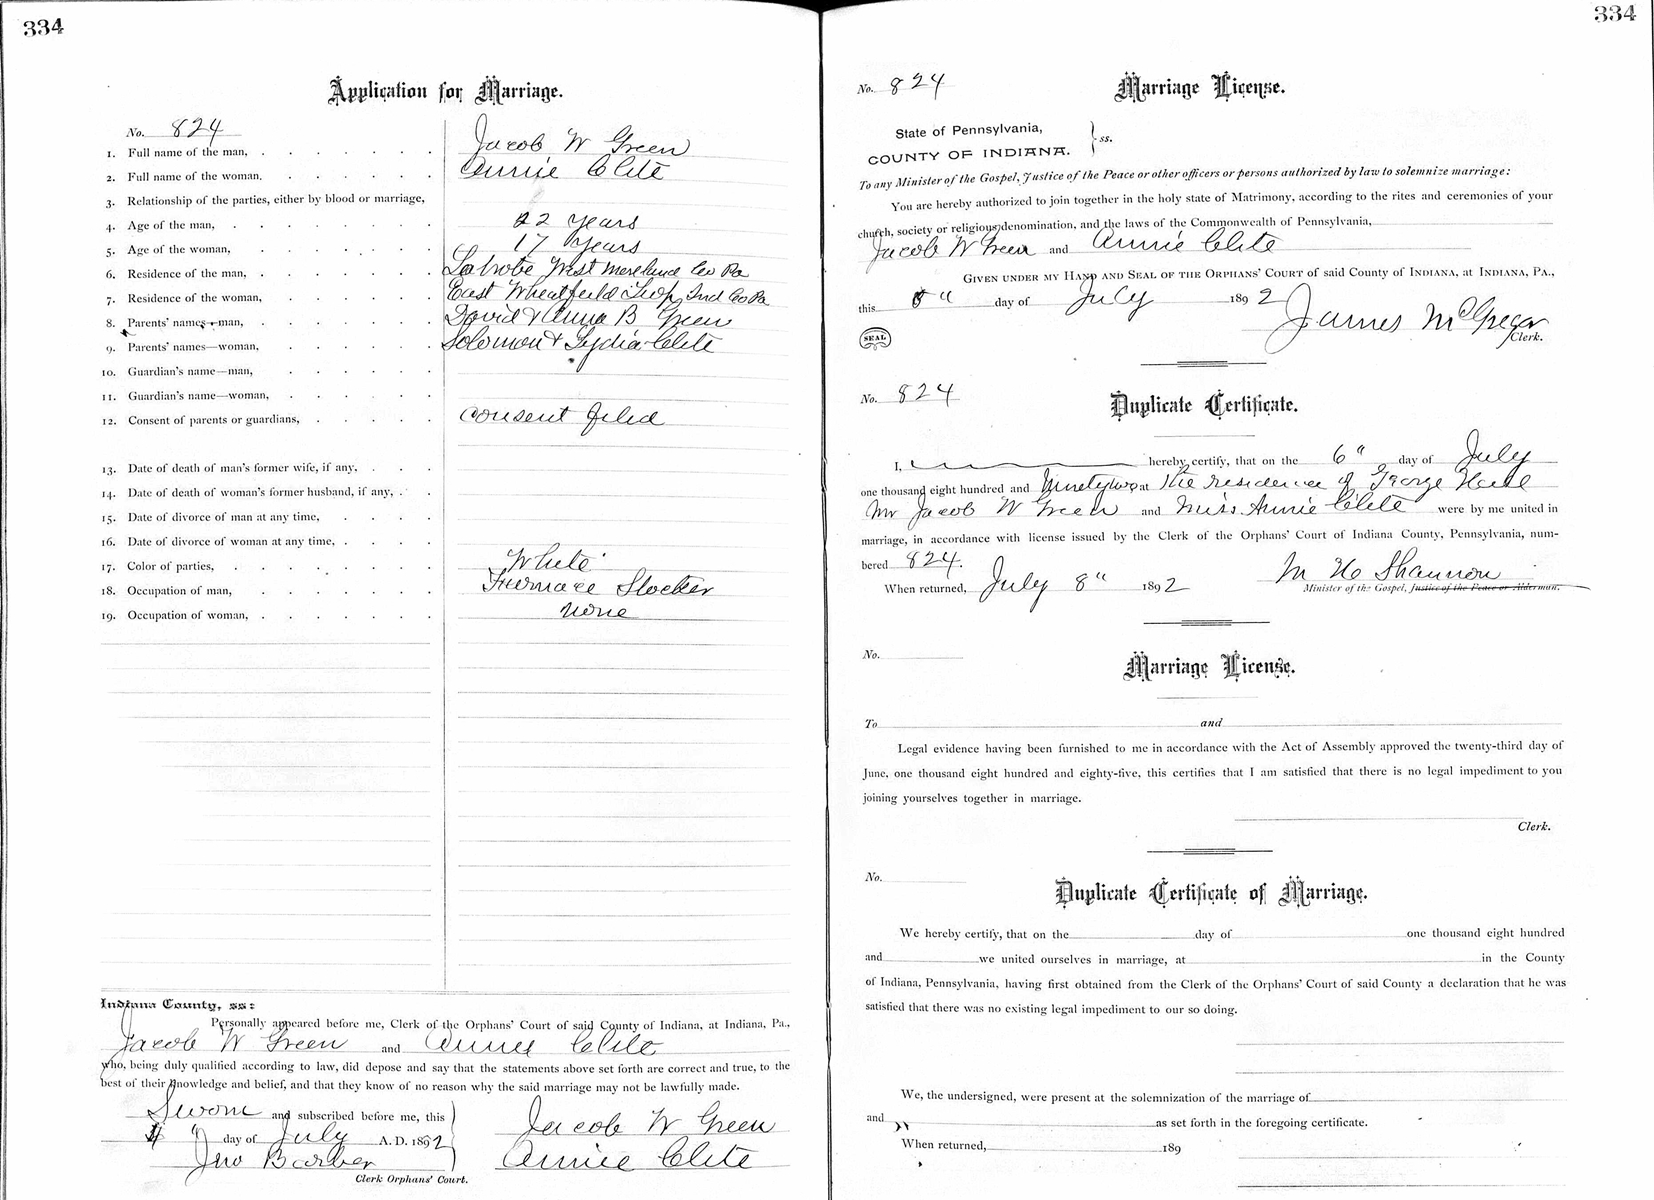 334
Application for Marriage.
No. 824
1. Full name of the man, Jacob W Green
2. Full name of the woman, Annie Clite
3. Relationship of the parties, either by blood or marriage,
4. Age of the man, 22 years
5. Age of the woman, 17 years
6. Residence of the man, Latrobe Westmoreland Co Pa
7. Residence of the woman, East Wheatfield Twp, Ind Co Pa
8. Parents' names—man, David & Anna B Green
9. Parents' names—woman, Solomon & Lydia Clite
10. Guardian's name—man,
11. Guardian's name—woman,
12. Consent of parents or guardians, consent filed
13. Date of death of man's former wife, if any,
14. Date of death of woman's former husband, if any,
15. Date of divorce of man at any time,
16. Date of divorce of woman at any time,
17. Color of parties, White
18. Occupation of man, Furnace Stocker
19. Occupation of woman, none
Indiana County, ss:
Personally appeared before me, Clerk of the Orphans' Court of said County of Indiana, at Indiana, Pa.,
Jacob W Green and Annie Clite
who, being duly qualified according to law, did depose and say that the statements above set forth are correct and true, to the
best of their knowledge and belief, and that they know of no reason why the said marriage may not be lawfully made.
Sworn and subscribed before me, this
day of July A. D. 1892
Jno Barber
Clerk Orphans' Court.
Jacob W Green
Annie Clite
334
No. 824
Marriage License.
State of Pennsylvania,
COUNTY OF INDIANA. } ss.
To any Minister of the Gospel, Justice of the Peace or other officers or persons authorized by law to solemnize marriage:
You are hereby authorized to join together in the holy state of Matrimony, according to the rites and ceremonies of your
church, society or religious denomination, and the laws of the Commonwealth of Pennsylvania,
Jacob W Green and Annie Clite
GIVEN UNDER MY HAND AND SEAL OF THE ORPHANS' COURT of said County of INDIANA, at INDIANA, PA.,
this day of July 1892
SEAL
James McGregor
Clerk.
No. 824
Duplicate Certificate.
I, hereby certify, that on the 6" day of July
one thousand eight hundred and Ninetytwo at the residence of George
Mr Jacob W Green and Miss Annie Clite were by me united in
marriage, in accordance with license issued by the Clerk of the Orphans' Court of Indiana County, Pennsylvania, num-
bered 824.
When returned, July 8" 1892
Shannon
Minister of the Gospel, Justice of the Peace or Alderman.
No.
Marriage License.
To and
Legal evidence having been furnished to me in accordance with the Act of Assembly approved the twenty-third day of
June, one thousand eight hundred and eighty-five, this certifies that I am satisfied that there is no legal impediment to you
joining yourselves together in marriage.
Clerk.
No.
Duplicate Certificate of Marriage.
We hereby certify, that on the day of one thousand eight hundred
and we united ourselves in marriage, at in the County
of Indiana, Pennsylvania, having first obtained from the Clerk of the Orphans' Court of said County a declaration that he was
satisfied that there was no existing legal impediment to our so doing.
We, the undersigned, were present at the solemnization of the marriage of
and as set forth in the foregoing certificate.
When returned, 189